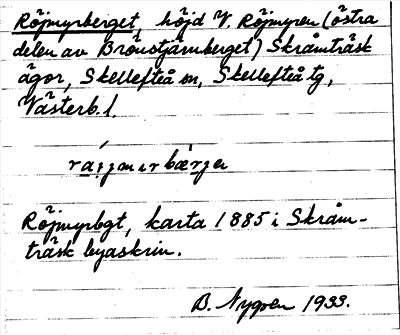 Röjmyrberget, höjd V. Röjmyren (östra
delen av Brännstjärnberget) Skråmträsk
ägor, Skellefteå sn, Skellefteå tg,
Västerb. l.
Röjmyrbgt, karta 1885 i Skråm-
träsk byaskrin.
B. Nygren 1933.